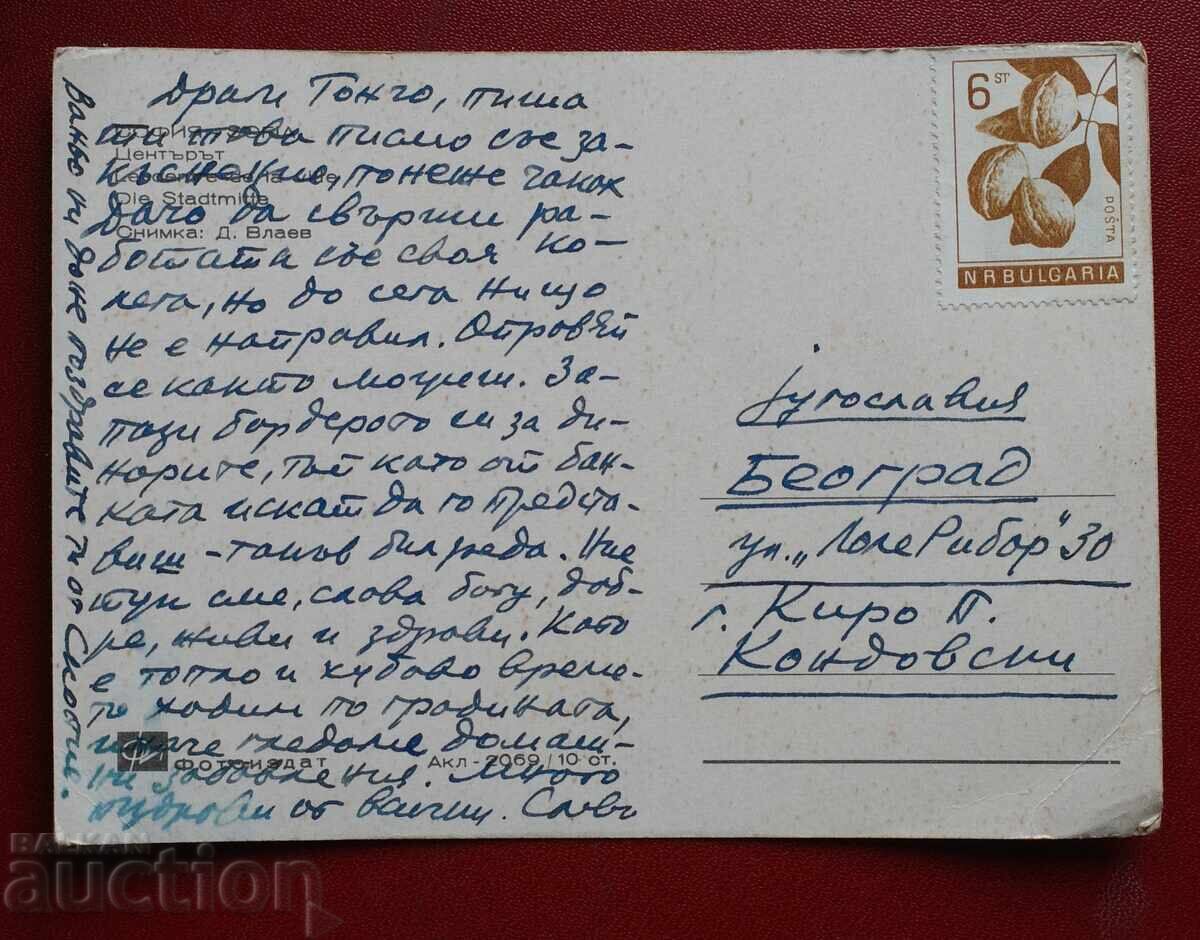 Драги Тончо, пиша
ти това писмо със за-
къснение, понеже чаках
Дачо да свърши ра-
ботата със своя ко-
лега, но до сега нищо
не е направил. Оправяй
се както можеш. За-
пази бордерото си за ди-
нарите, тъй като от бан-
ката искат да го предста-
виш - такъв бил реда. Ние
тук сме, слава богу, доб-
ре, живи и здрави. Като
е топло и хубаво време-
то ходим по градината,
иначе гледаме домаш-
ни забавления. Много
поздрави от всички. Славчо
Ваньо ни доне поздравите ти от Скопие.
СОФИЯ - SOFIA
Центърът
Le centre de la ville
Die Stadtmitte
Снимка: Д. Влаев
Фотоиздат
Акл-2069/10 ст.
6 ST
POŠTA
N R BULGARIA
Југославия
Београд
ул. „Лоле Рибар" 30
г. Киро П.
Кондовски
BALKAN
auction